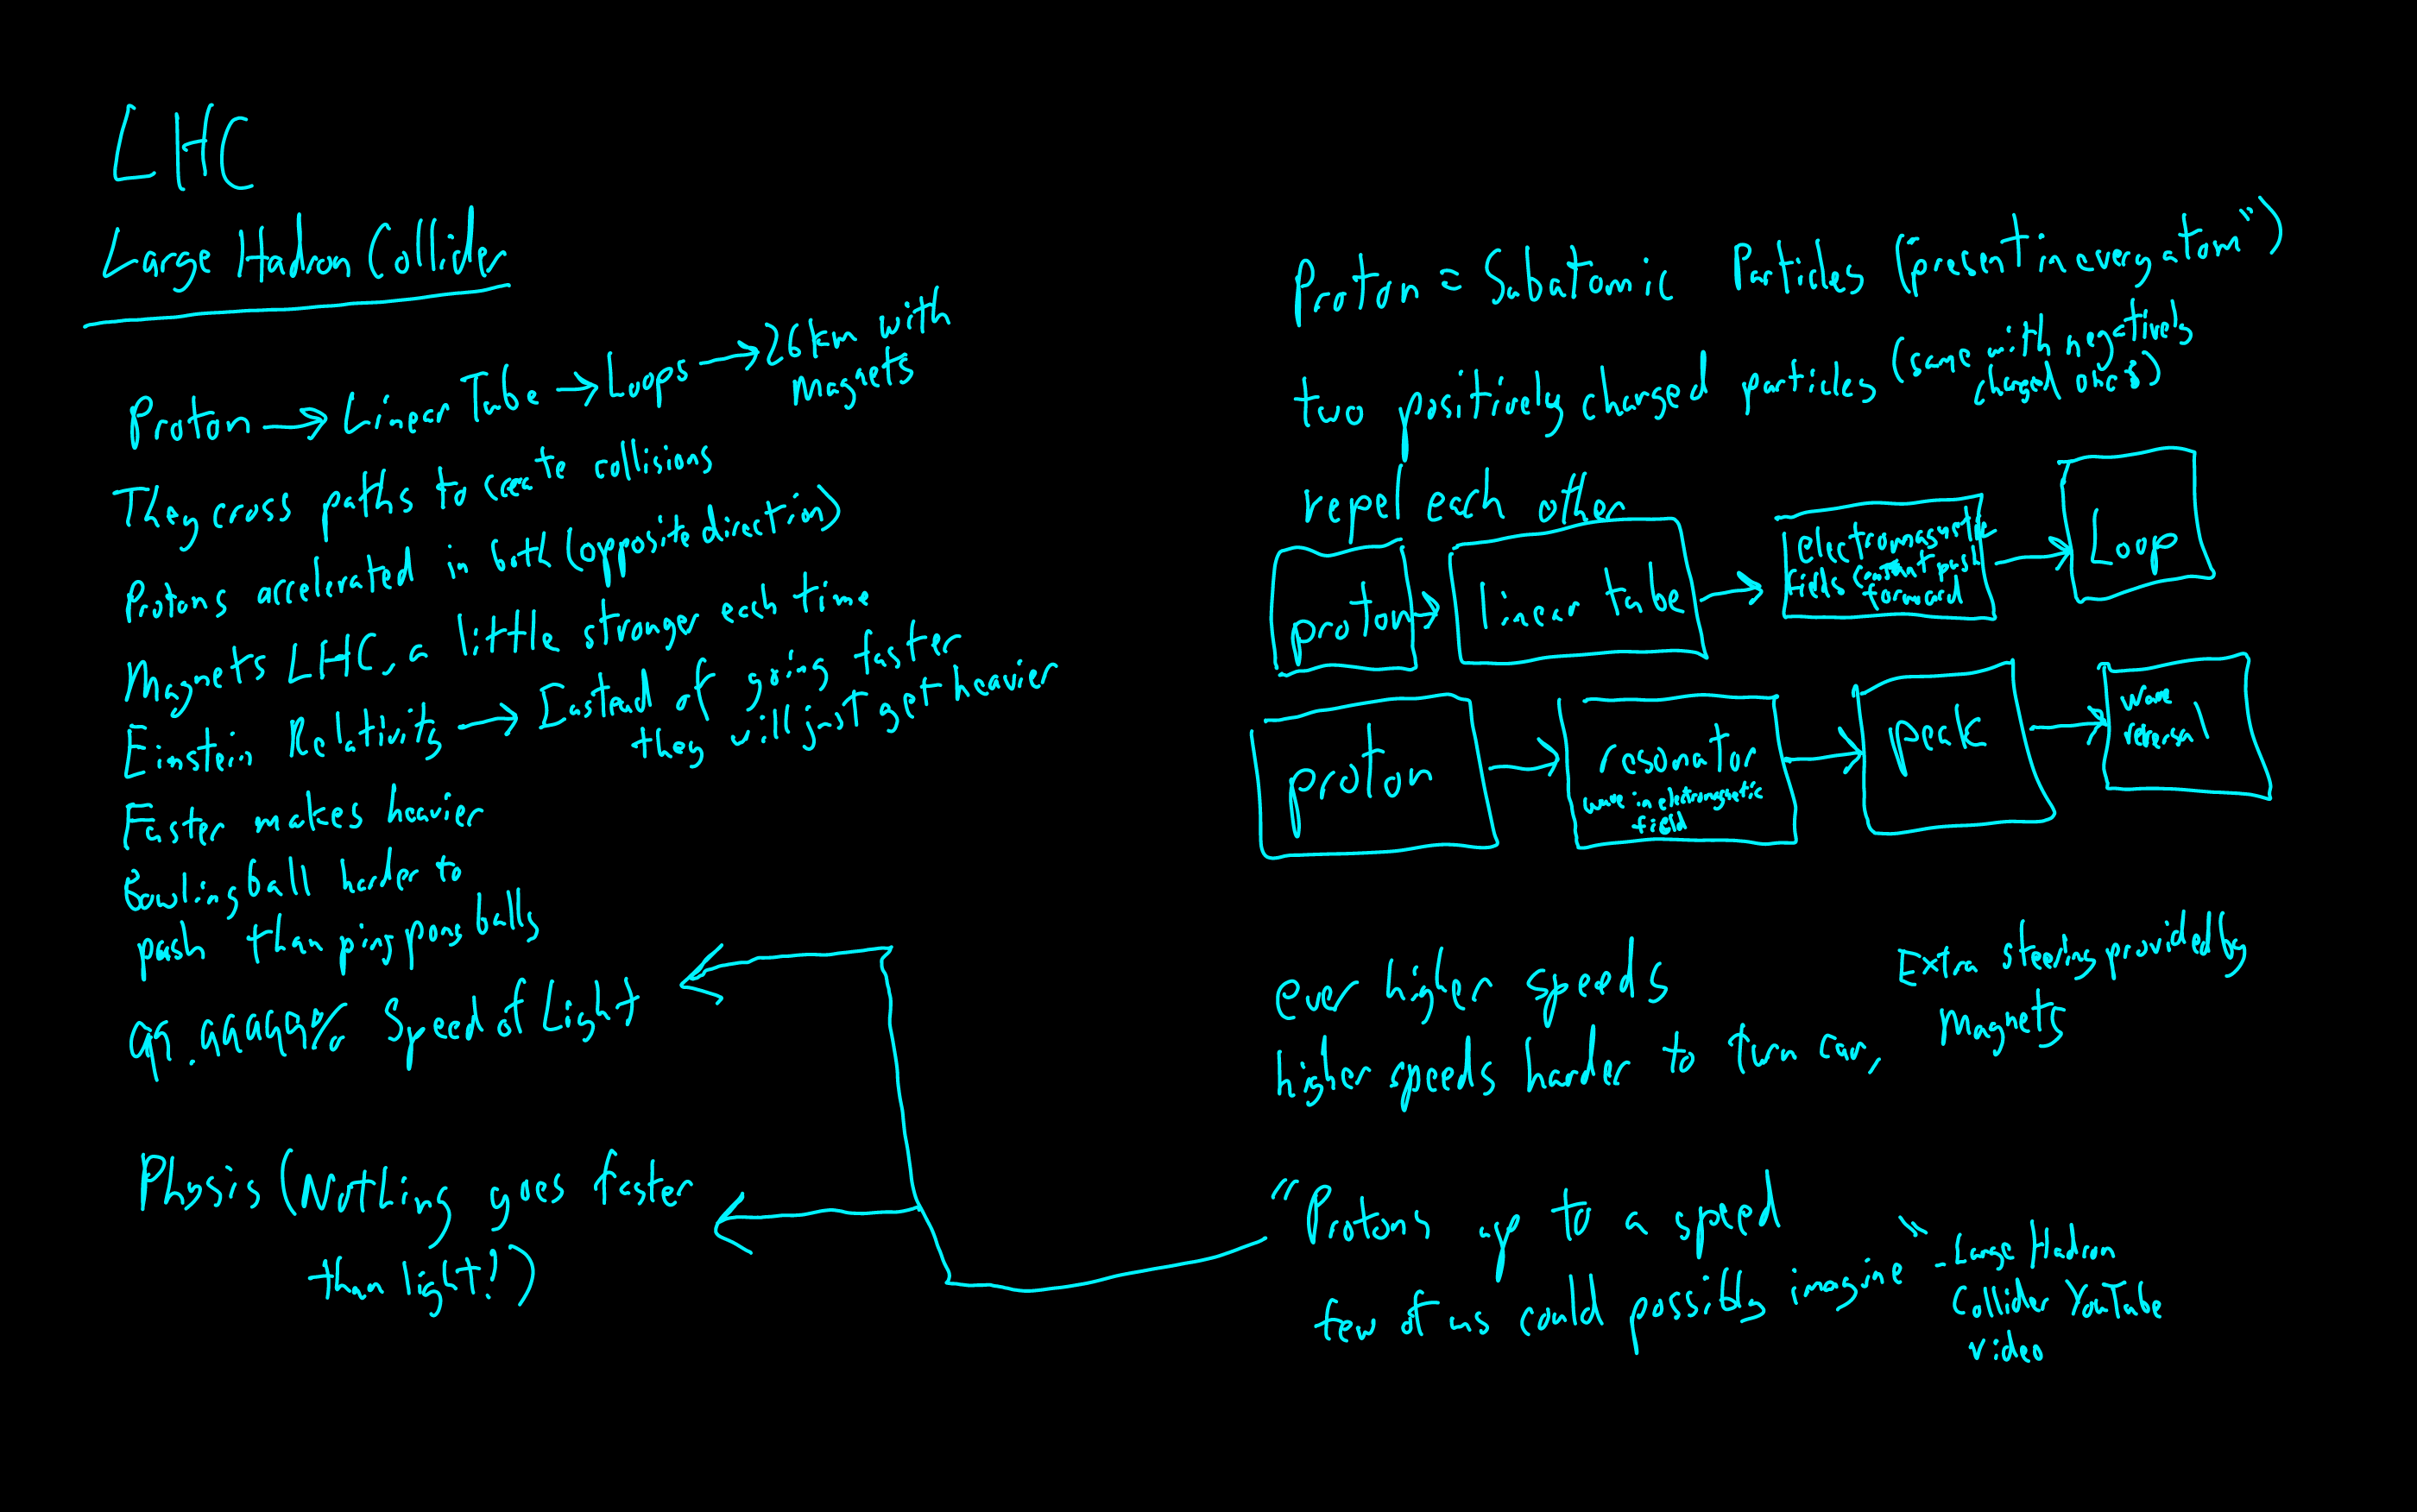 LHC
Large Hadron Collider
Proton → Linear Tube → Loops → 26km with
magnets
They cross paths to create collisions
Protons accelerated in both (opposite direction)
Magnets LHC, a little stronger each time
Einstein Relativity → Instead of going faster
they will just get heavier
Faster makes heavier
Bowling ball harder to
push than ping pong balls
99.9999% Speed of Light
Physis (Nothing goes faster
than light!)
Proton = Subatomic Particles ("present in every atom")
two positively charged particles (same with negatively
charged ones)
repel each other
proton → linear tube → electromagnetic
fields constant push
forward → Loop
proton → resonator
wave in electromagnetic
field → peak → wave
reversal
ever higher speeds
higher speeds harder to turn car,
Extra steering provided by
magnets
"Protons up to a speed
few of us could possibly imagine" - Large Hadron
Collider YouTube
video